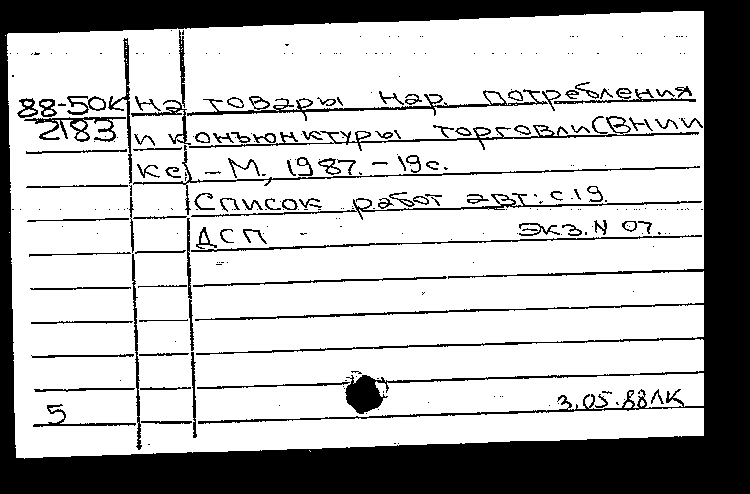 88-50К на товары нар. потребления
2183 и конъюнктуры торговли (ВНИИ
кс) - М., 1987. - 19 с.
Список работ авт.: с. 19.
ДСП - Экз. N 07.
5 3.05.88 ЛК